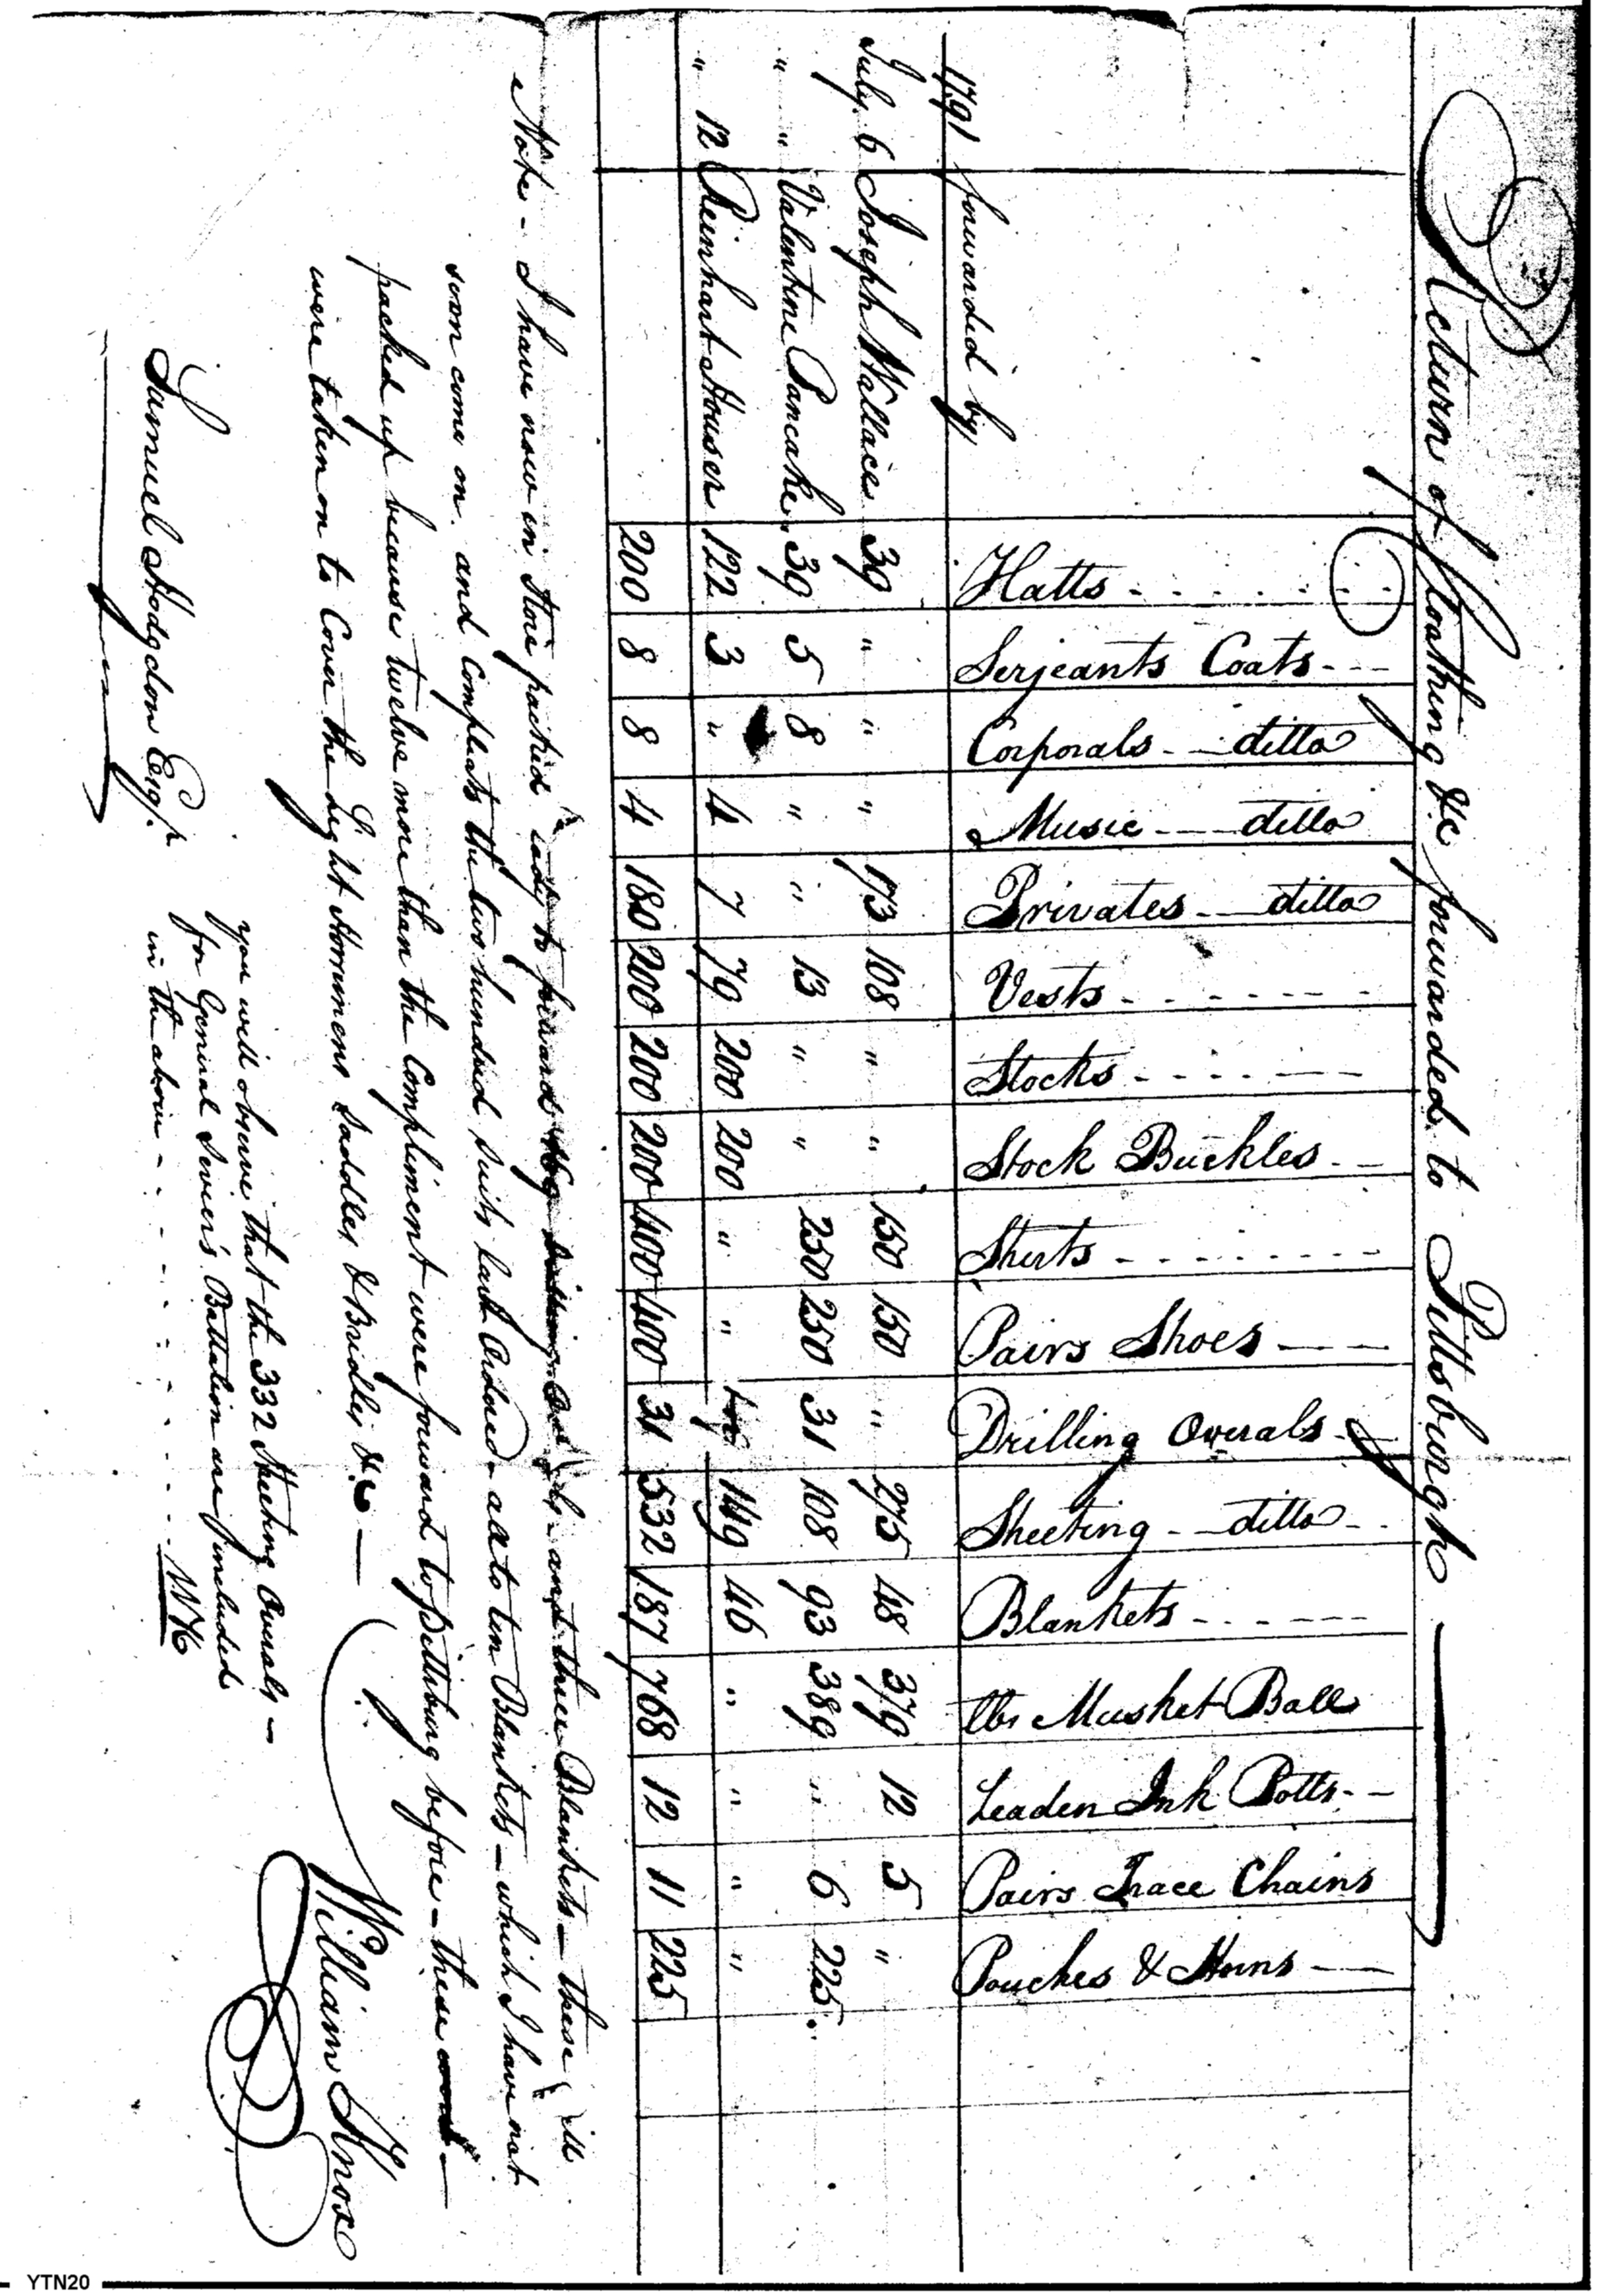 Return of Cloathing &c forwarded to Pittsburgh
1791 forwarded by Hatts Serjeants Coats Corporals ditto Music ditto Privates ditto Vests Stocks Stock Buckles Shirts Pairs Shoes Drilling Overals Sheeting ditto Blankets lbs Musket Ball Leaden Ink Potts Pairs Trace Chains Pouches & Horns
July 6 Joseph Wallace 39 " " " 173 108 " " 150 150 " 275 48 379 12 5 "
" " Valentine Pancake 39 5 8 " " 13 " " 250 250 31 108 93 389 " 6 225
" 12 Reinhart Houser 122 3 " 4 7 79 200 200 " " 149 46 " " " "
200 8 8 4 180 200 200 200 400 400 31 532 187 768 12 11 225
Note - I have now in Store packed ready to forward 169 Drilling Overals and three Blankets - these will
soon come on and Compleats the two hundred Suits last Ordered all to ten Blankets - which I have not
packed up because twelve more than the Compliment were forward to Pittsburg before - these
were taken on to Cover the Light Horsemens Saddles & Bridles &c -
William Knox
Samuel Hodgdon Esqr.
you will observe that the 332 Sheeting Overals -
for General Sevier's Battalion are included
in the above - WK
YTN20